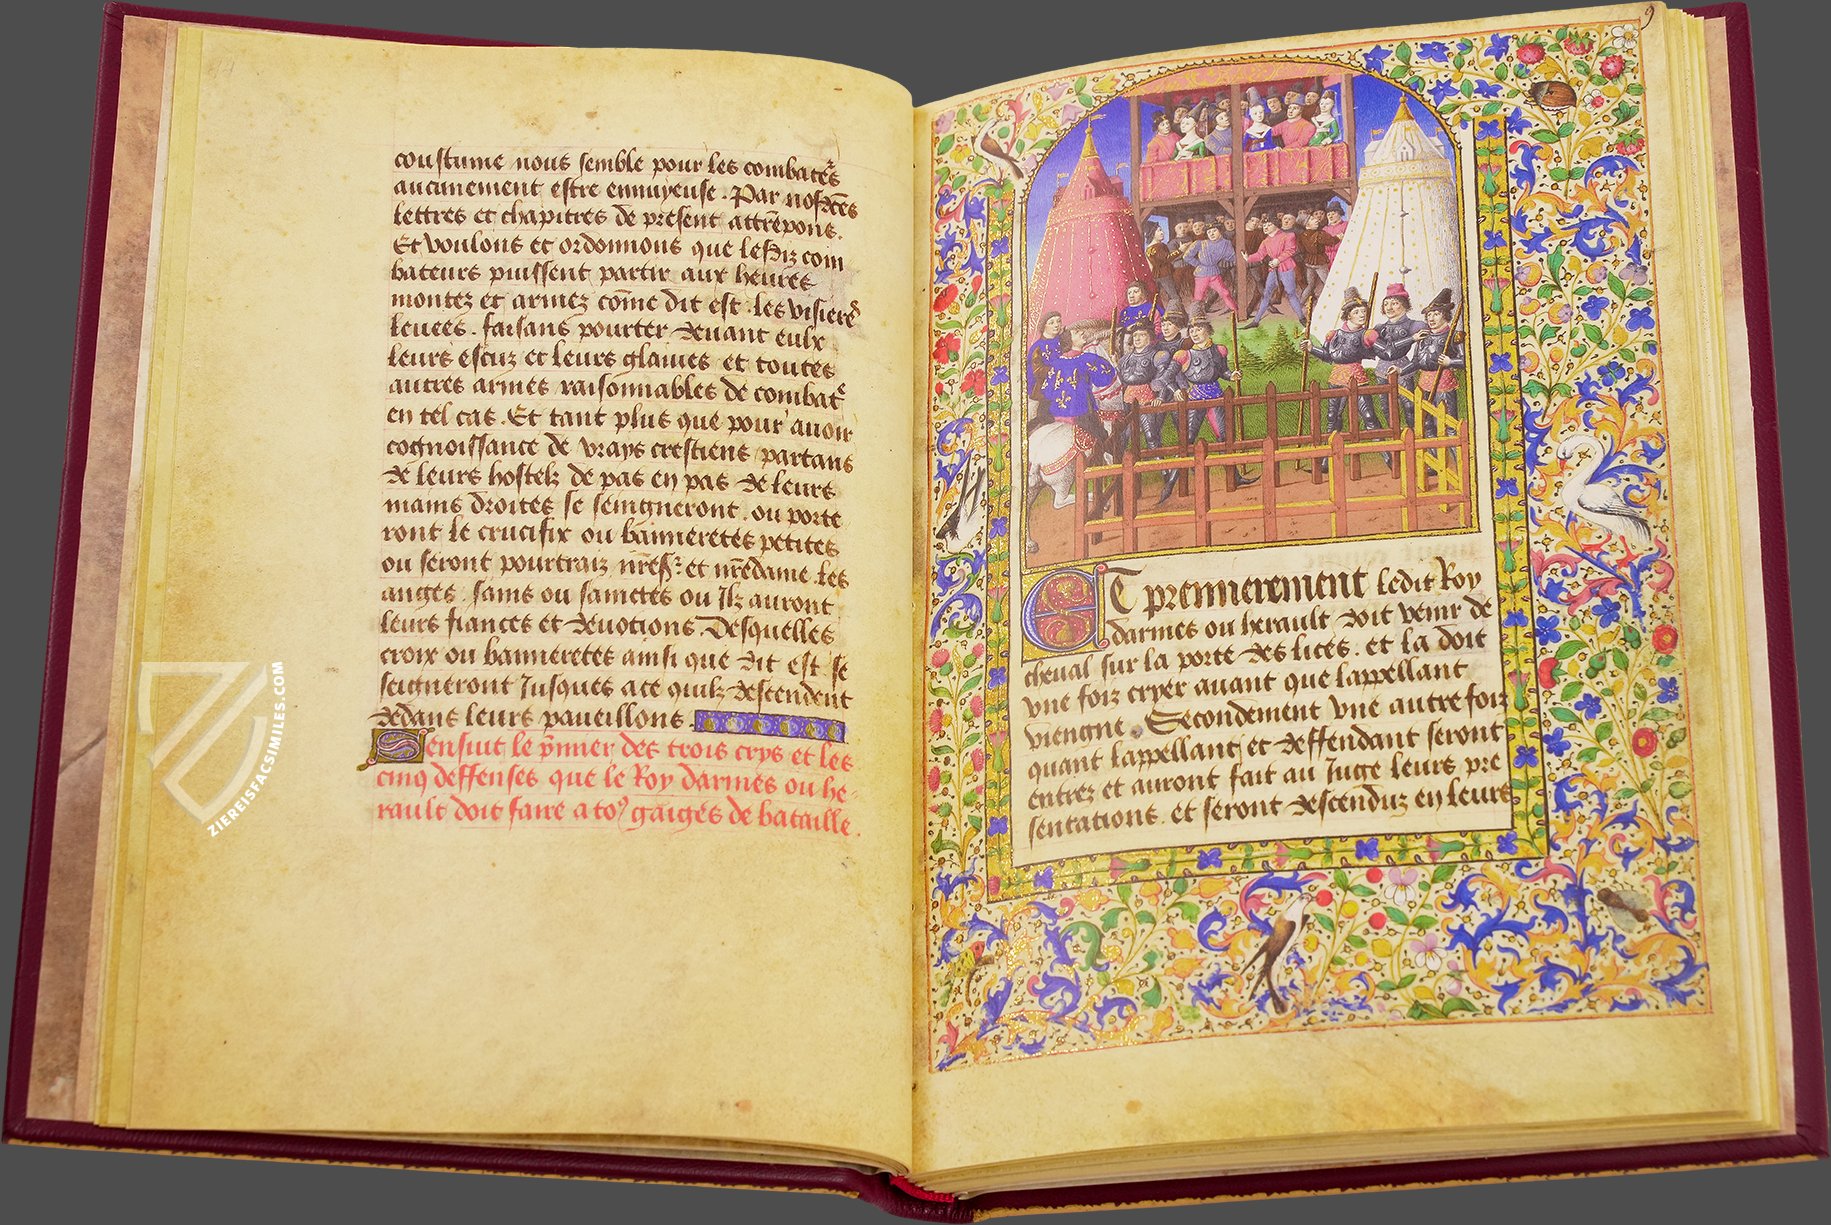 coustume nous semble pour les combatēs
aucunement estre ennuyeuse. Par nosdcēs
lettres et chapitres de present attrēpons.
Et voulons et ordonnons que lesdiz com
bateurs puissent partir aux heures
montez et armez cōme dit est. les visierē
leuees. faisans pourter deuant eulx
leurs escuz et leurs glaiues et toutes
autres armes raisonnables de combat
en tel cas. Et tant plus que pour auoir
cognoissance de vrays crestiens partans
de leurs hostelz de pas en pas de leurs
mains droites se seingneront. ou porte
ront le crucifix ou banneretes petites
ou seront pourtraiz nrēs. et nrēdame. les
anges. sains ou sainctes ou ilz auront
leurs fiances et deuotions. Desquelles
croix ou banneretes ainsi que dit est se
seigneront Jusques a ce quilz descendent
dedans leurs paueillons.
Sensuit le p̄mier des trois crys et les
cinq deffenses que le Roy darmes ou he-
rault doit faire a to⁹ gaiges de bataille.
9
ET premierement ledit Roy
darmes ou herault doit venir de
cheual sur la porte des lices. et la doit
vne foiz cryer auant que lappellant
viengne. Secondement vne autre foiz
quant lappellant et deffendant seront
entrez et auront fait au Juge leurs pre
sentations. et seront descenduz en leurs
ZIEREISFACSIMILES.COM